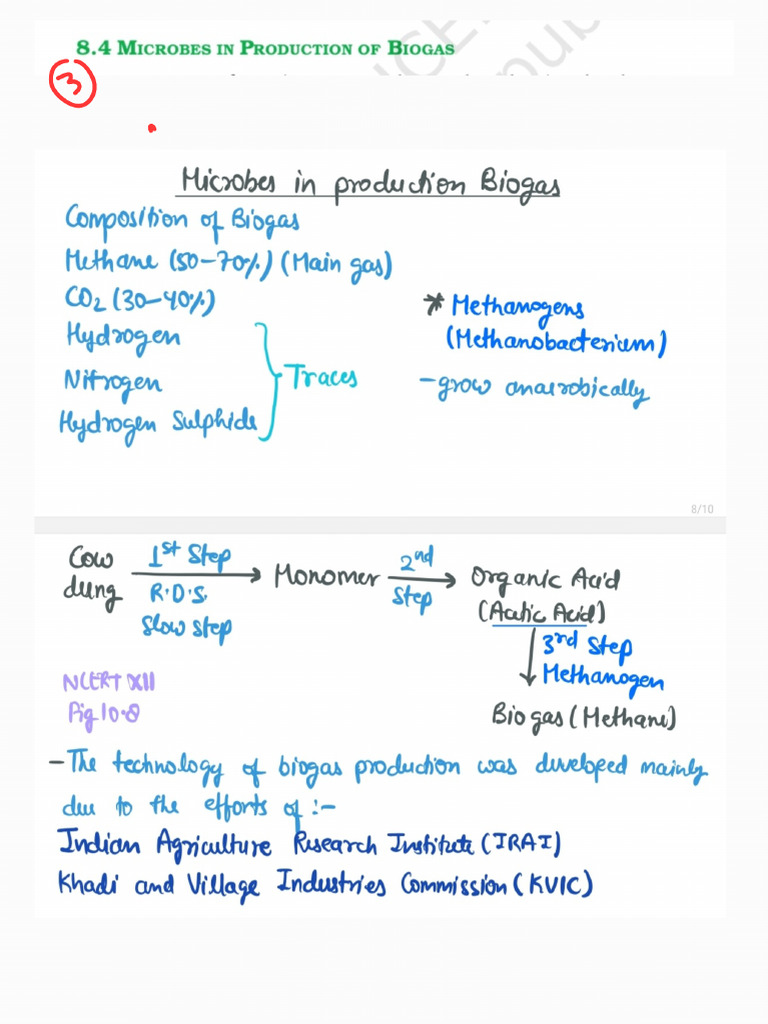 8.4 MICROBES IN PRODUCTION OF BIOGAS
3
Microbes in production Biogas
Composition of Biogas
Methane (50-70%) (Main gas)
CO2 (30-40%)
Hydrogen
Nitrogen
Hydrogen Sulphide
Traces
* Methanogens
(Methanobacterium)
- grow anaerobically
8/10
Cow dung
1st Step
R.D.S.
Slow step
Monomer
2nd Step
Organic Acid
(Acetic Acid)
3rd Step
Methanogen
Biogas (Methane)
NCERT XII
Fig 10.8
- The technology of biogas production was developed mainly
due to the efforts of :-
Indian Agriculture Research Institute (IRAI)
Khadi and Village Industries Commission (KVIC)